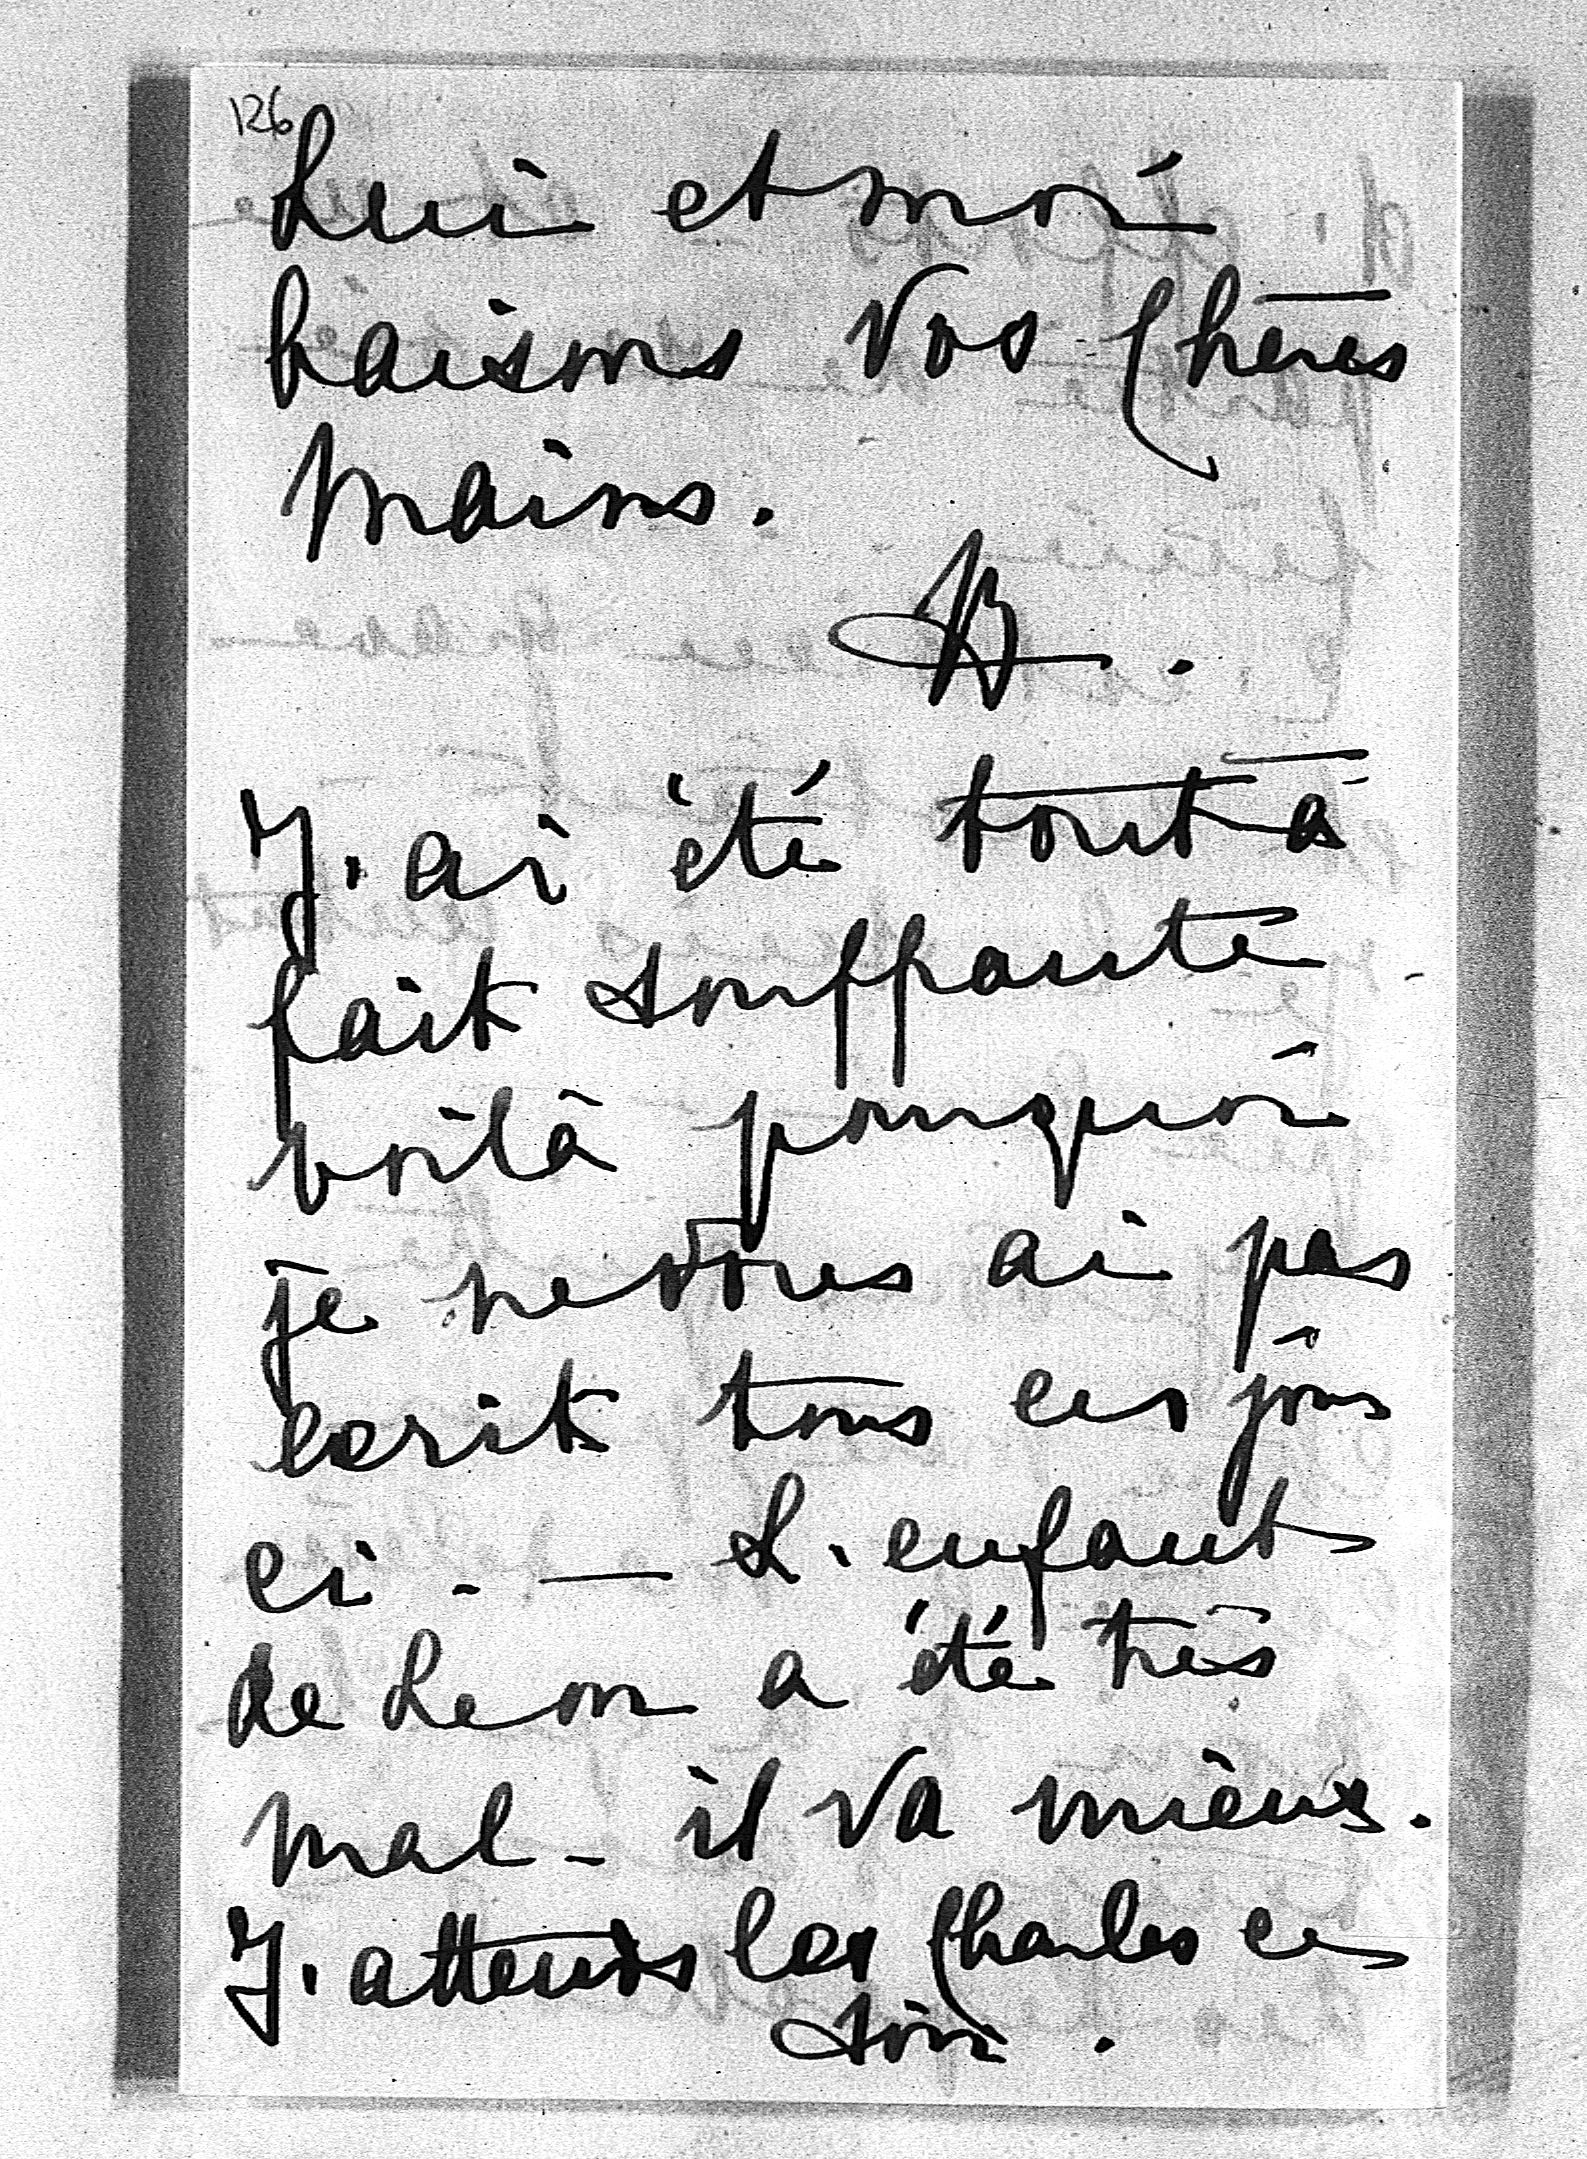 126
Lui et moi
baisons vos Chères
mains.
B.
J'ai été tout à
fait souffrante
voilà pourquoi
je ne vous ai pas
ecrit tous ces jours
ci. — L'enfant
de Leon a été très
mal - il va mieux.
J'attends les Charles ce
soir.